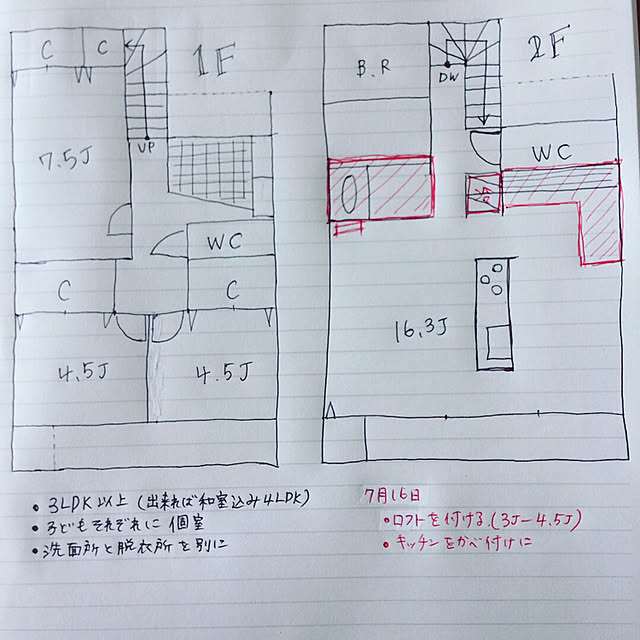 1F
2F
C
C
UP
7.5J
WC
C
C
4.5J
4.5J
B.R
DW
WC
冷
16.3J
・3LDK以上(出来れば和室込み4LDK)
・子どもそれぞれに個室
・洗面所と脱衣所を別に
7月16日
・ロフトを付ける.(3J-4.5J)
・キッチンをかべ付けに